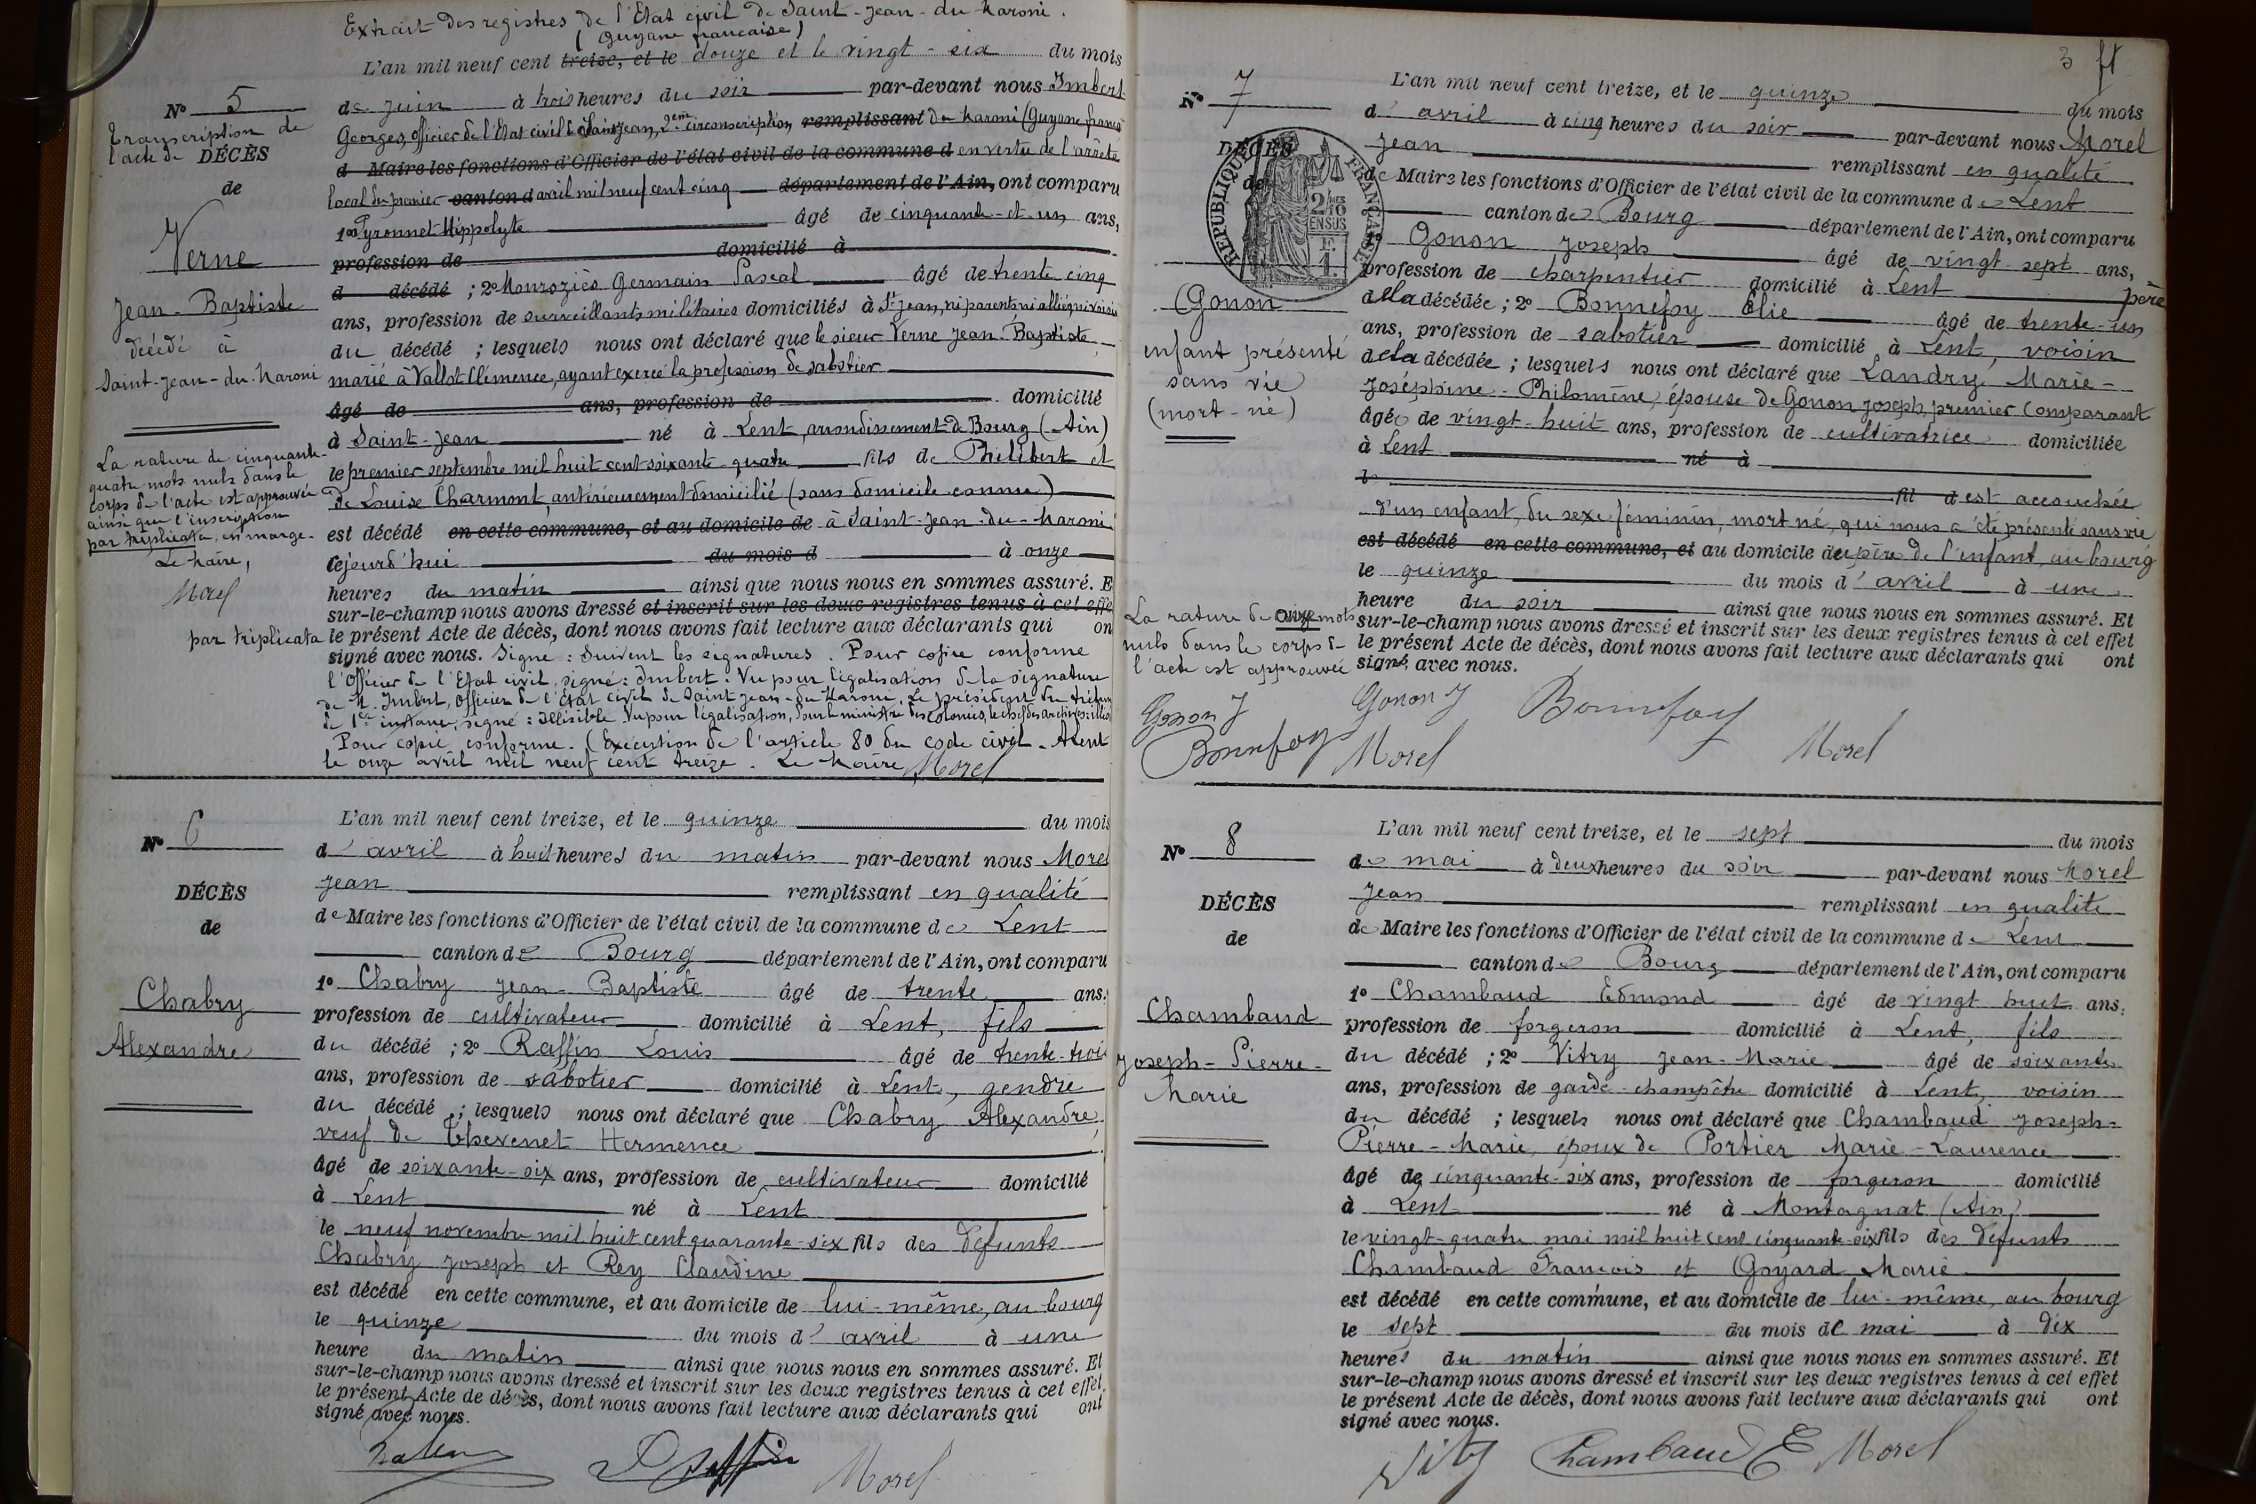 Extrait des registres de l'Etat civil de Saint-Jean-du-Maroni.
(Guyane française)
L'an mil neuf cent treize, et le douze et le vingt-six du mois
N° 5
Transcription de
l'acte de DÉCÈS
de
Verne
Jean-Baptiste
décédé à
Saint-Jean-du-Maroni
La rature de cinquante-
quatre mots nuls dans le
corps de l'acte est approuvée
ainsi que l'inscription
par triplicata, en marge.
Le Maire,
Morel
par triplicata
de juin à trois heures du soir par-devant nous Imbert
Georges, officier de l'Etat civil de Saint Jean, 2eme circonscription remplissant du Maroni (Guyane franc
d Maire les fonctions d'Officier de l'état civil de la commune d en vertu de l'arrêté
local du premier canton d avril mil neuf cent cinq département de l'Ain, ont comparu
1° Pyronnet Hippolyte âgé de cinquante-et-un ans,
profession de domicilié à
d décédé ; 2° Mouroziès Germain Pascal âgé de trente cinq
ans, profession de surveillants militaires domiciliés à St Jean, ni parents ni alliés ni voisins
du décédé ; lesquels nous ont déclaré que le sieur Verne Jean-Baptiste
marié à Vallot Clémence, ayant exercé la profession de sabotier
âgé de ans, profession de domicilié
à Saint-Jean né à Lent, arrondissement de Bourg (Ain)
le premier septembre mil huit cent soixante-quatre fils de Philibert et
de Louise Charmont, antérieurement domicilié (sans domicile connu)
est décédé en cette commune, et au domicile de à Saint-Jean-du-Maroni
cejourd'hui du mois d à onze
heures du matin ainsi que nous nous en sommes assuré. E
sur-le-champ nous avons dressé et inscrit sur les deux registres tenus à cet effe
le présent Acte de décès, dont nous avons fait lecture aux déclarants qui on
signé avec nous. Signé : Suivent les signatures. Pour copie conforme
l'Officier de l'Etat civil, signé : Imbert. Vu pour légalisation de la signature
de M. Imbert, officier de l'état civil de Saint-Jean-du-Maroni, Le président du tribun
de 1re instance, signé : Illisible. Vu pour légalisation, pour le ministre des Colonies, le chef des archives : illis
Pour copie conforme. (Exécution de l'article 80 du code civil. A Lent
le onze avril mil neuf cent treize. Le Maire, Morel
N° 6
DÉCÈS
de
Chabry
Alexandre
L'an mil neuf cent treize, et le quinze du mois
d'avril à huit heures du matin par-devant nous Morel
Jean remplissant en qualité
de Maire les fonctions d'Officier de l'état civil de la commune de Lent
canton de Bourg département de l'Ain, ont comparu
1° Chabry Jean-Baptiste âgé de trente ans,
profession de cultivateur domicilié à Lent, fils
du décédé ; 2° Raffin Louis âgé de trente-trois
ans, profession de sabotier domicilié à Lent, gendre
du décédé ; lesquels nous ont déclaré que Chabry Alexandre
veuf de Thevenet Hermence
âgé de soixante-six ans, profession de cultivateur domicilié
à Lent né à Lent
le neuf novembre mil huit cent quarante-six fils des défunts
Chabry Joseph et Rey Claudine
est décédé en cette commune, et au domicile de lui-même, au bourg
le quinze du mois d'avril à une
heure du matin ainsi que nous nous en sommes assuré. Et
sur-le-champ nous avons dressé et inscrit sur les deux registres tenus à cet effet
le présent Acte de décès, dont nous avons fait lecture aux déclarants qui ont
signé avec nous.
Morel
3 ft
N° 7
DÉCÈS
de
RÉPUBLIQUE FRANÇAISE
2/10 EN SUS
F. 1.
Gonon
enfant présenté
sans vie
(mort-né)
La rature de onze mots
nuls dans le corps de
l'acte est approuvée
Gonon J
Bonnefoy
Morel
L'an mil neuf cent treize, et le quinze du mois
d'avril à cinq heures du soir par-devant nous Morel
Jean remplissant en qualité
de Maire les fonctions d'Officier de l'état civil de la commune de Lent
canton de Bourg département de l'Ain, ont comparu
1° Gonon Joseph âgé de vingt-sept ans,
profession de charpentier domicilié à Lent père
de la décédée ; 2° Bonnefoy Elie âgé de trente-un
ans, profession de sabotier domicilié à Lent, voisin
de la décédée ; lesquels nous ont déclaré que Landry Marie-
Joséphine-Philomène, épouse de Gonon Joseph, premier comparant
âgée de vingt-huit ans, profession de cultivatrice domiciliée
à Lent né à
le fil d est accouchée
d'un enfant, du sexe féminin, mort né, qui nous a été présenté sans vie
est décédé en cette commune, et au domicile du père de l'enfant, au bourg
le quinze du mois d'avril à une
heure du soir ainsi que nous nous en sommes assuré. Et
sur-le-champ nous avons dressé et inscrit sur les deux registres tenus à cet effet
le présent Acte de décès, dont nous avons fait lecture aux déclarants qui ont
signé avec nous.
Gonon J Bonnefoy Morel
N° 8
DÉCÈS
de
Chambaud
Joseph-Pierre-
Marie
L'an mil neuf cent treize, et le sept du mois
de mai à deux heures du soir par-devant nous Morel
Jean remplissant en qualité
de Maire les fonctions d'Officier de l'état civil de la commune de Lent
canton de Bourg département de l'Ain, ont comparu
1° Chambaud Edmond âgé de vingt huit ans,
profession de forgeron domicilié à Lent, fils
du décédé ; 2° Vitry Jean-Marie âgé de soixante
ans, profession de garde-champêtre domicilié à Lent, voisin
du décédé ; lesquels nous ont déclaré que Chambaud Joseph-
Pierre-Marie, époux de Portier Marie-Laurence
âgé de cinquante-six ans, profession de forgeron domicilié
à Lent né à Montagnat (Ain)
le vingt-quatre mai mil huit cent cinquante-six fils des défunts
Chambaud François et Goyard Marie
est décédé en cette commune, et au domicile de lui-même, au bourg
le sept du mois de mai à dix
heures du matin ainsi que nous nous en sommes assuré. Et
sur-le-champ nous avons dressé et inscrit sur les deux registres tenus à cet effet
le présent Acte de décès, dont nous avons fait lecture aux déclarants qui ont
signé avec nous.
Vitry Chambaud E Morel